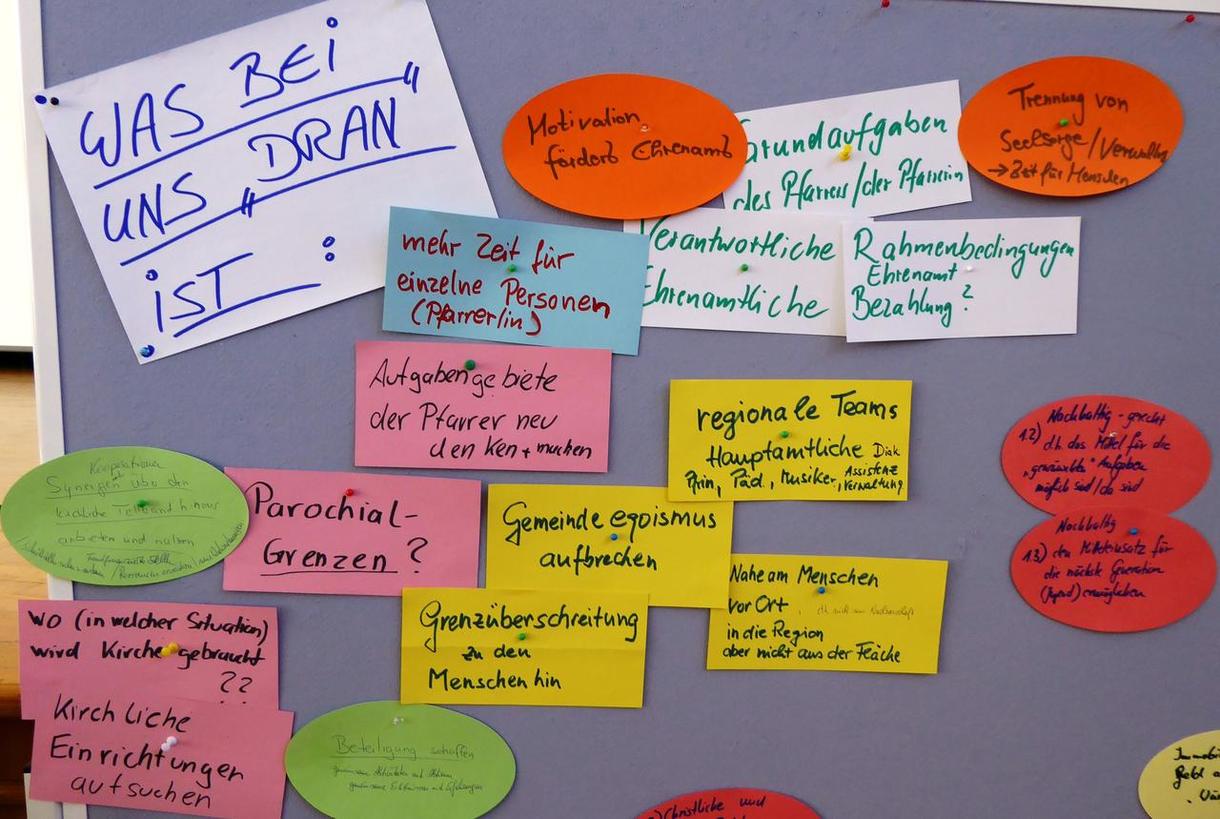 WAS BEI
UNS "DRAN"
IST :
Motivation
fördert Ehrenamt
Grundaufgaben
des Pfarrers/der Pfarrerin
Trennung von
Seelsorge/Verwaltung
→ Zeit für Menschen
mehr Zeit für
einzelne Personen
(Pfarrer/in)
Verantwortliche
Ehrenamtliche
Rahmenbedingungen
Ehrenamt
Bezahlung?
Aufgabengebiete
der Pfarrer neu
denken + machen
regionale Teams
Hauptamtliche Diak
Pfrin, Päd., Musiker, Assistenz
Verwaltung
12) Nachhaltig - gerecht
d.h. das Mittel für die
"gewünschte" Aufgaben
möglich sind / da sind
Nachhaltig
13) den Mitteleinsatz für
die nächste Generation
(Jugend) ermöglichen
Kooperationen
Synergien über den
kirchliche Tellerrand hinaus
anbieten und nutzen
Parochial-
Grenzen?
Gemeindeegoismus
aufbrechen
Nahe am Menschen
vor Ort,
in die Region
aber nicht aus der Fläche
Grenzüberschreitung
zu den
Menschen hin
WO (in welcher Situation)
wird Kirche gebraucht
??
Kirchliche
Einrichtungen
aufsuchen
Beteiligung schaffen
Christliche und
Geld